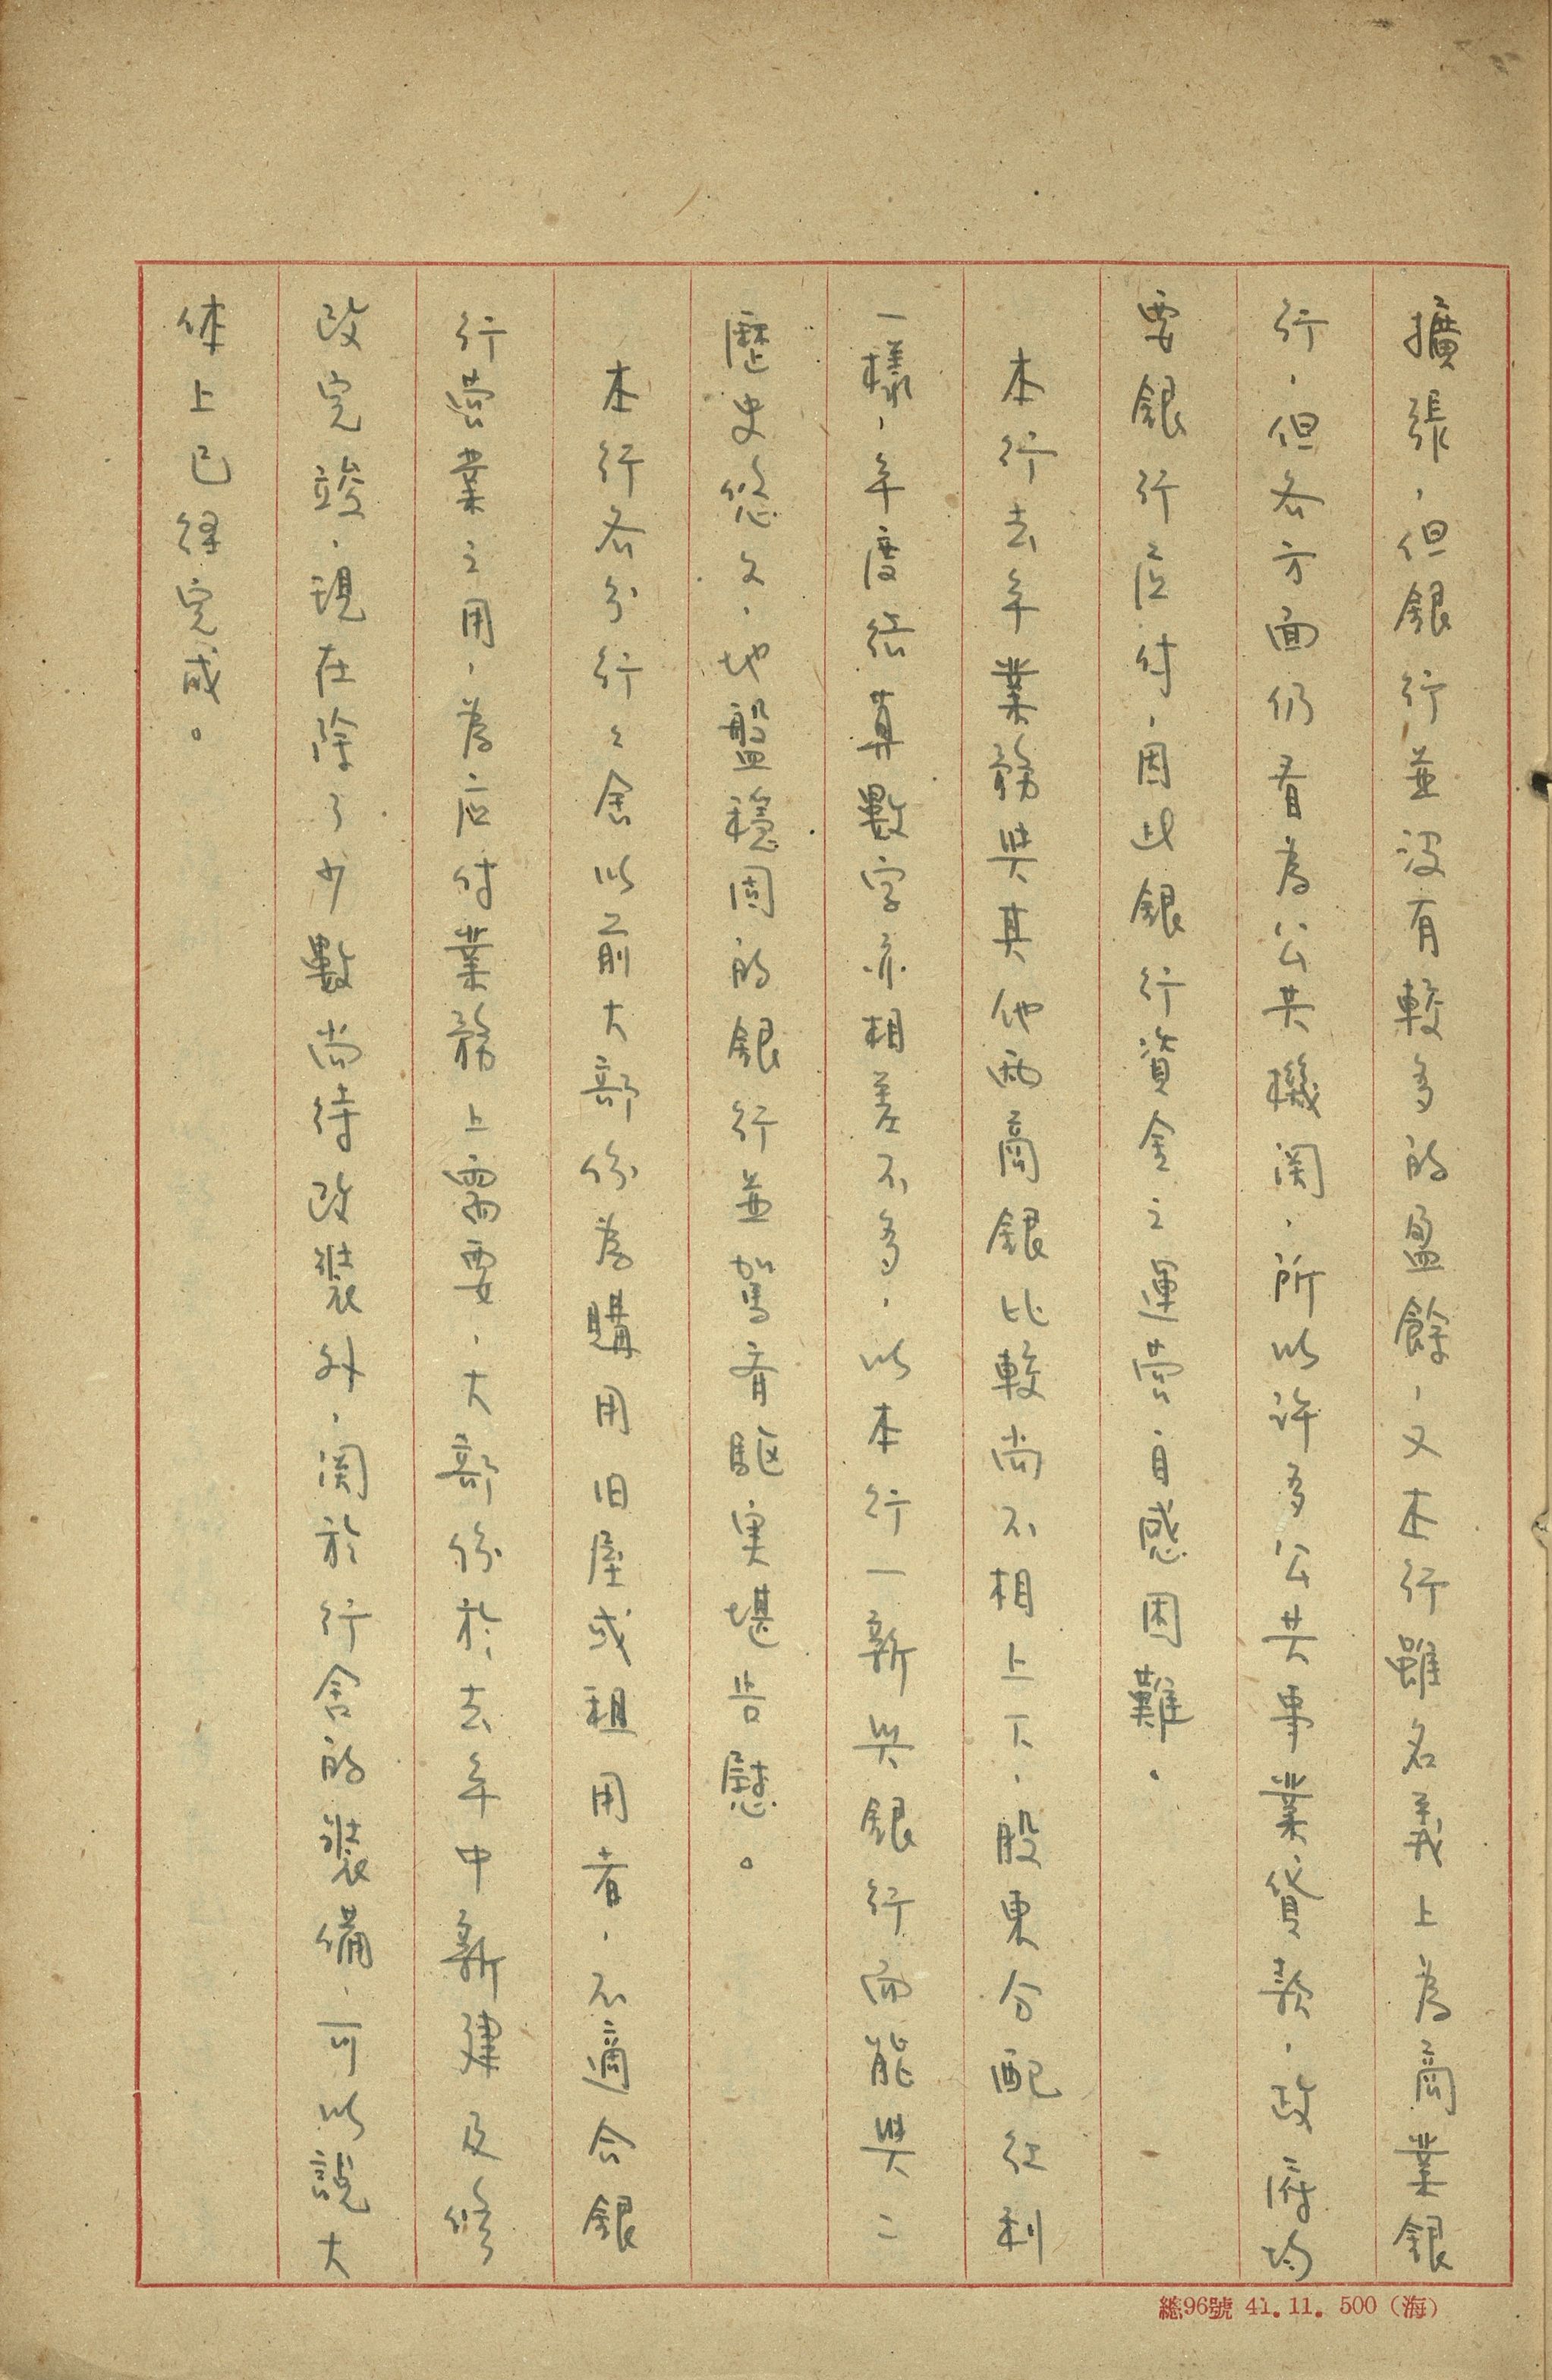 擴張，但銀行並没有較多的盈餘，又本行雖名義上為商業銀
行，但各方面仍看為公共機関，所以許多公共事業貸款，政府均
要銀行应付，因此銀行資金之運営，自感困難。
本行去年業務與其他兩商銀比較尚不相上下，股東分配红利
一樣，年度結算數字亦相差不多，以本行一新興銀行而能與二
歷史悠久，地盤穩固的銀行並駕齊駆実堪告慰。
本行各分行々舍以前大部份為購用旧屋或租用者，不適合銀
行営業之用，為应付業務上需要，大部份於去年中新建及修
改完竣，現在除了少數尚待改裝外，関於行舍的裝備，可以說大
体上已経完成。
總96號 41.11. 500（海）